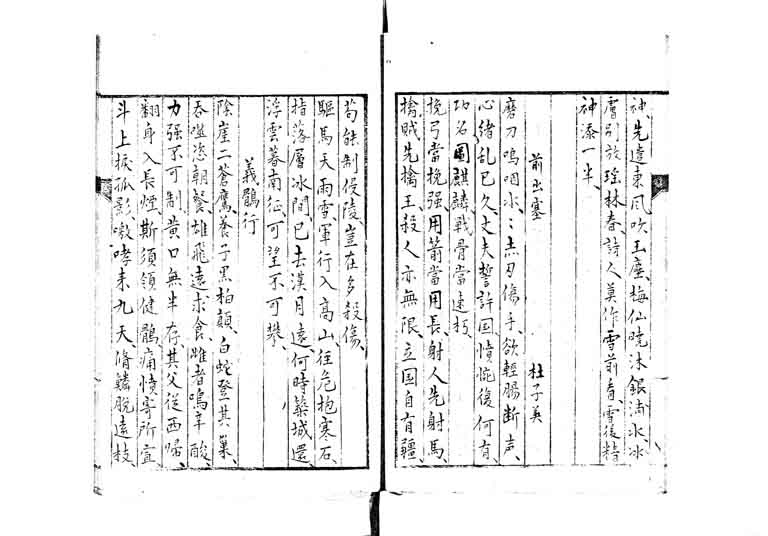 神、先遣東風吹玉塵、梅仙曉沐銀河水、冰
膚別放瑤林春、詩人莫作雪前看、雪後精
神添一半、
前出塞
杜子美
磨刀嗚咽水、〻赤刃傷手、欲輕腸断声、
心緒乱已久、丈夫誓許国、憤惋復何有、
功名圖麒麟、戰骨當速朽、
挽弓當挽强、用箭當用長、射人先射馬、
擒賊先擒王、殺人亦無限、立国自有疆、
苟能制侵陵、豈在多殺傷、
驅馬天雨雪、軍行入高山、徑危抱寒石、
指落層冰間、已去漢月遠、何時築城還、
浮雲暮南征、可望不可攀、
義鶻行
陰崖二蒼鷹、養子黑柏顛、白蛇登其巢、
吞噬恣朝餐、雄飛遠求食、雌者鳴辛酸、
力强不可制、黄口無半存、其父從西帰、
翻身入長煙、斯須領健鶻、痛憤寄所宣
斗上捩孤影、噭哮来九天、脩鱗脫遠枝